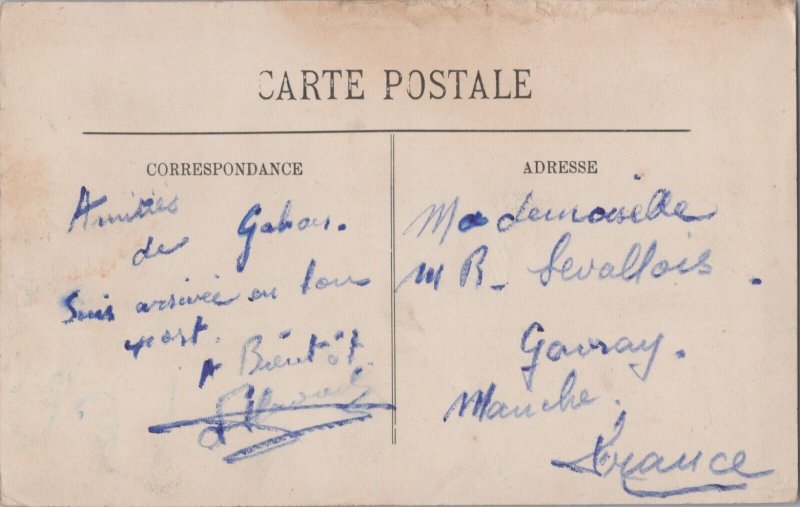 CARTE POSTALE
CORRESPONDANCE
Amitiés
de Gabès.
Suis arrivée en bon
port.
A Bientôt.
ADRESSE
Mademoiselle
M B. Levallois.
Gavray.
Manche.
France